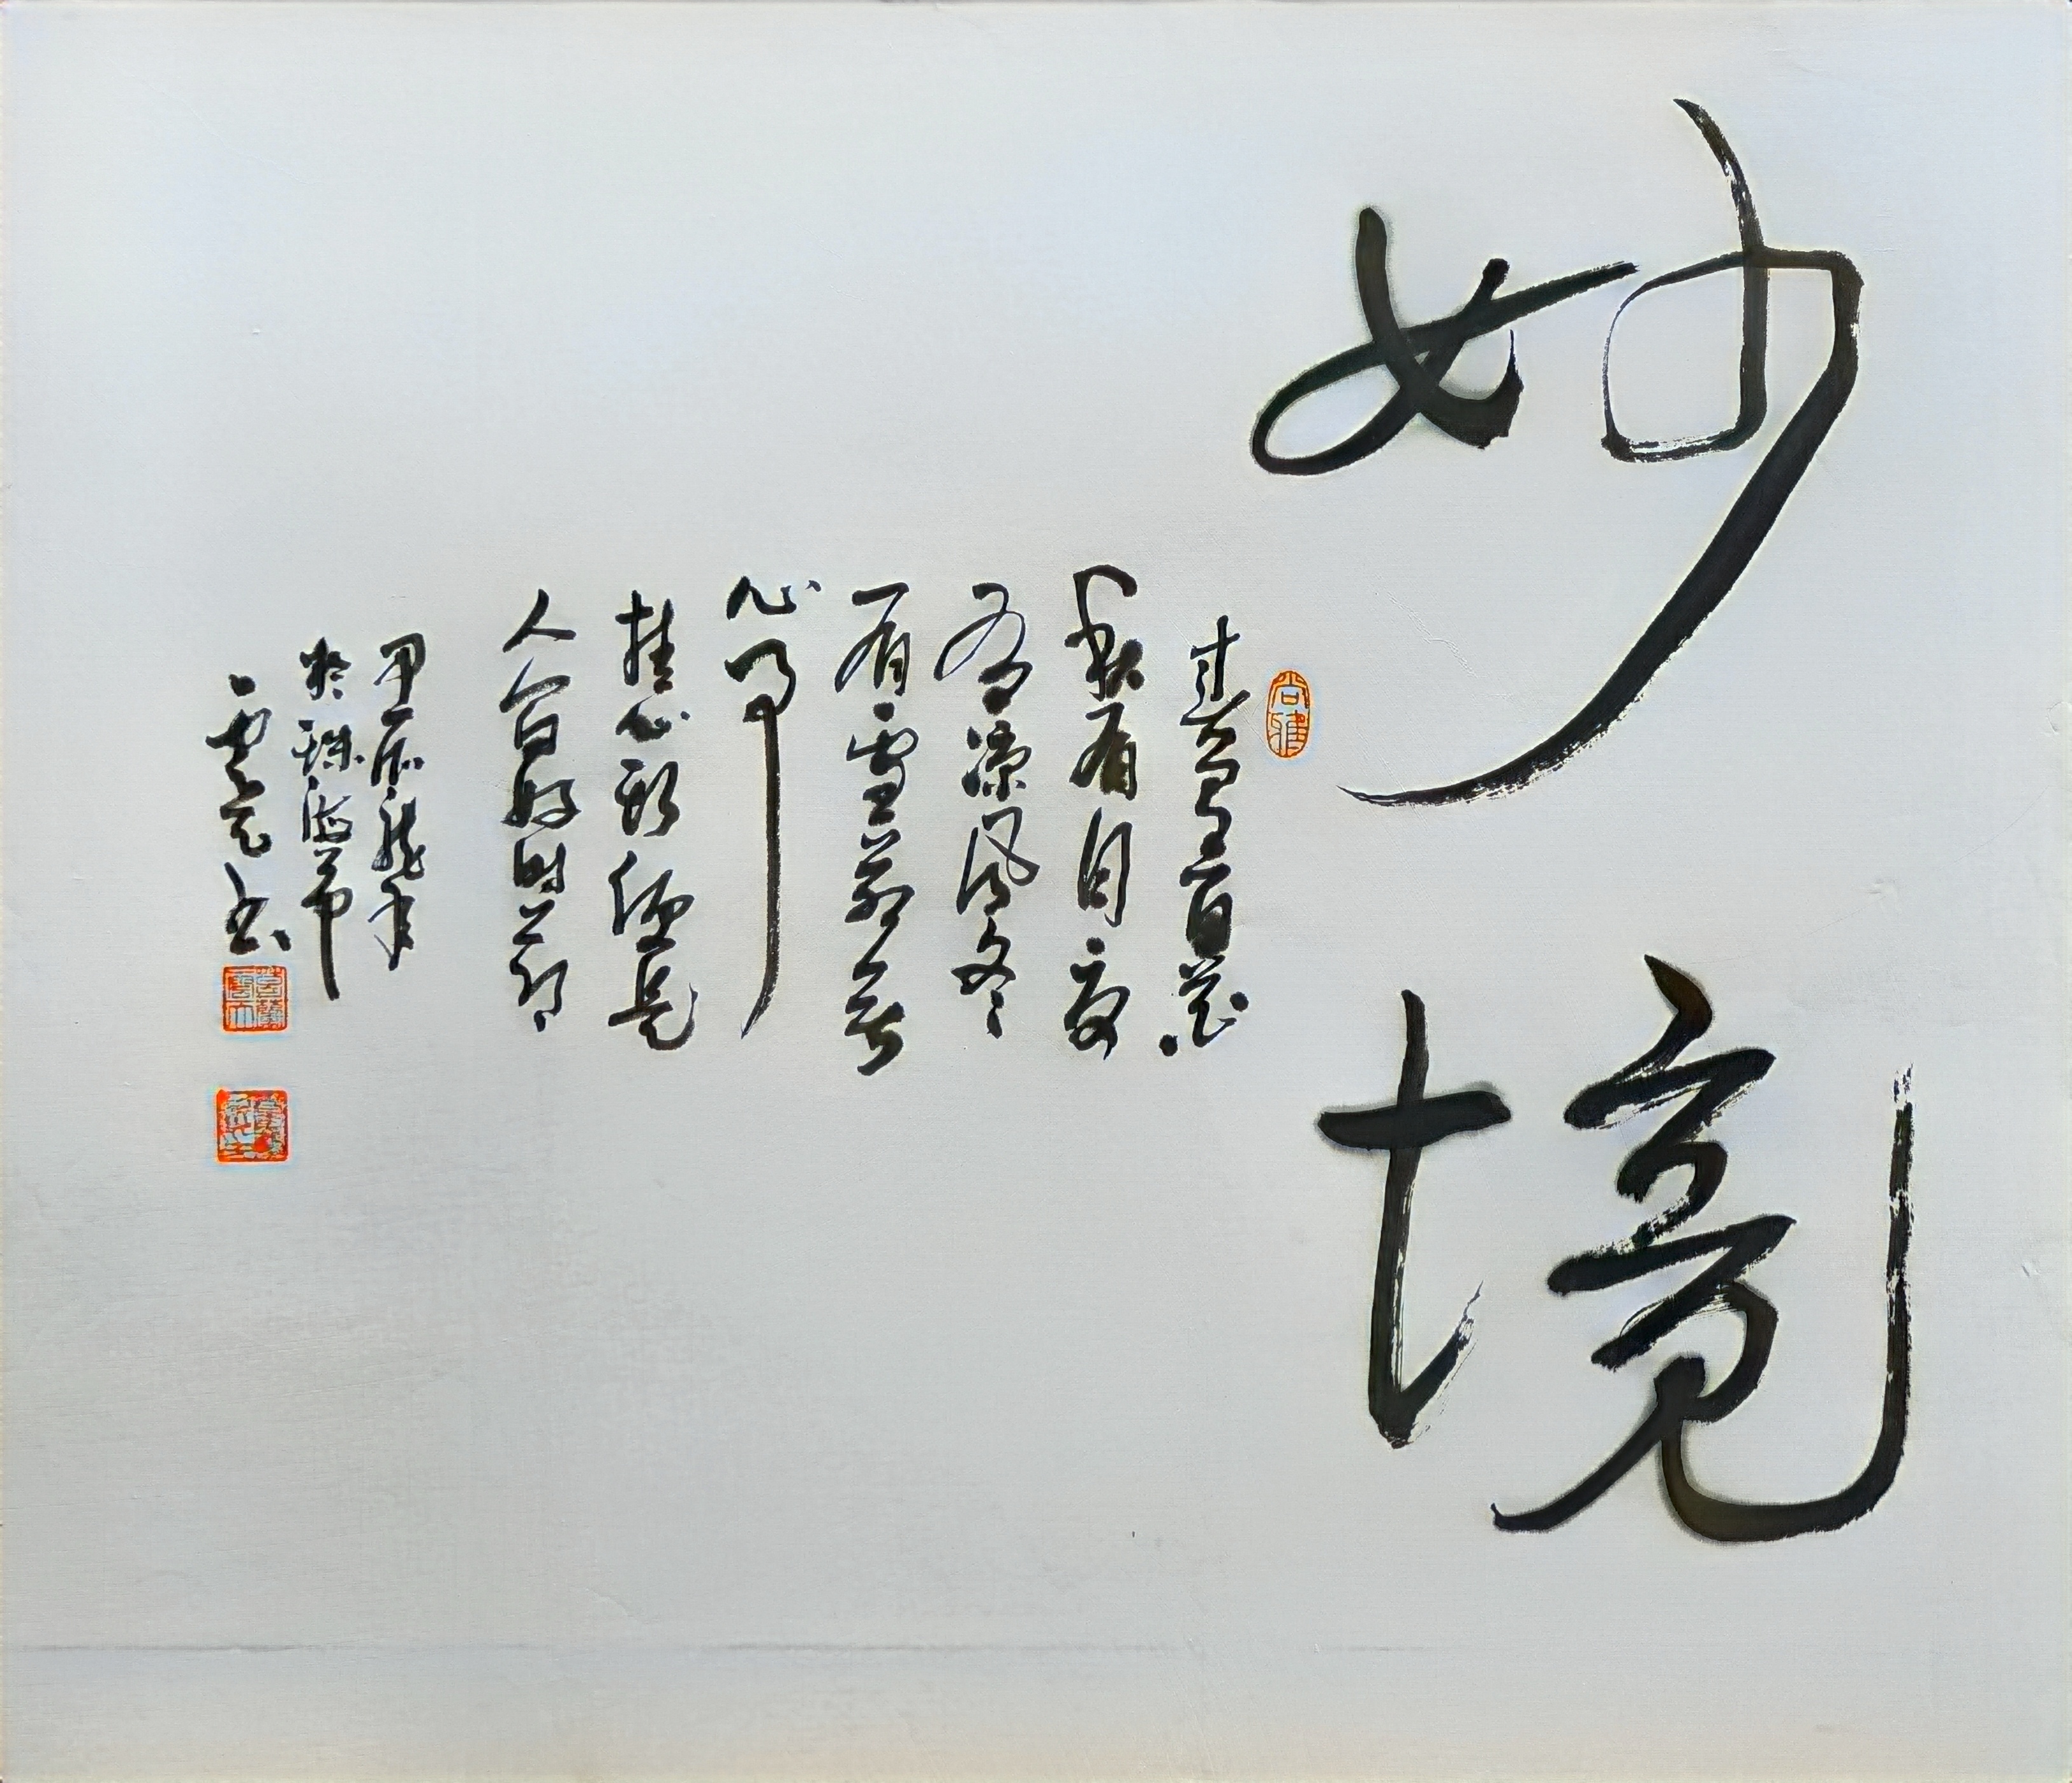 妙境
尚雅
春有百花
秋有月夏
有涼風冬
有雪若無
閑事
挂心頭便是
人間好時節
甲辰龍年
於珠海市
書